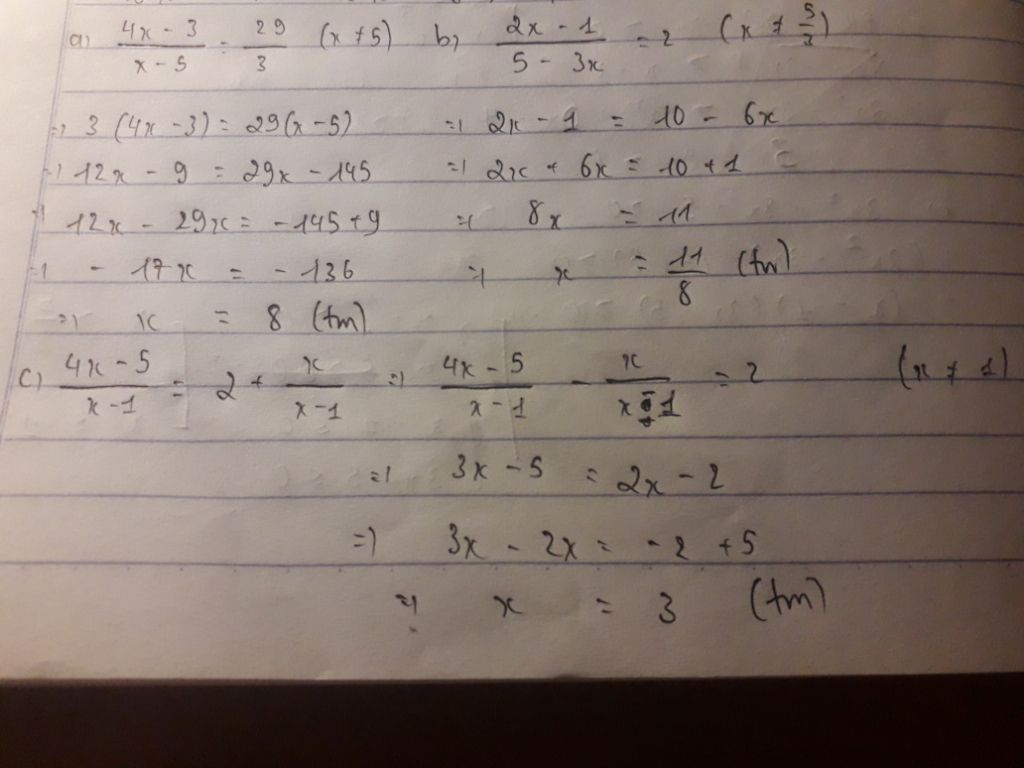 a) (4x - 3)/(x - 5) = 29/3 (x ≠ 5) b) (2x - 1)/(5 - 3x) = 2 (x ≠ 5/3)
=> 3 (4x - 3) = 29(x - 5) => 2x - 1 = 10 - 6x
=> 12x - 9 = 29x - 145 => 2x + 6x = 10 + 1
=> 12x - 29x = -145 + 9 => 8x = 11
=> - 17x = - 136 => x = 11/8 (tm)
=> x = 8 (tm)
c) (4x - 5)/(x - 1) = 2 + x/(x - 1) => (4x - 5)/(x - 1) - x/(x - 1) = 2 (x ≠ 1)
=> 3x - 5 = 2x - 2
=> 3x - 2x = -2 + 5
=> x = 3 (tm)